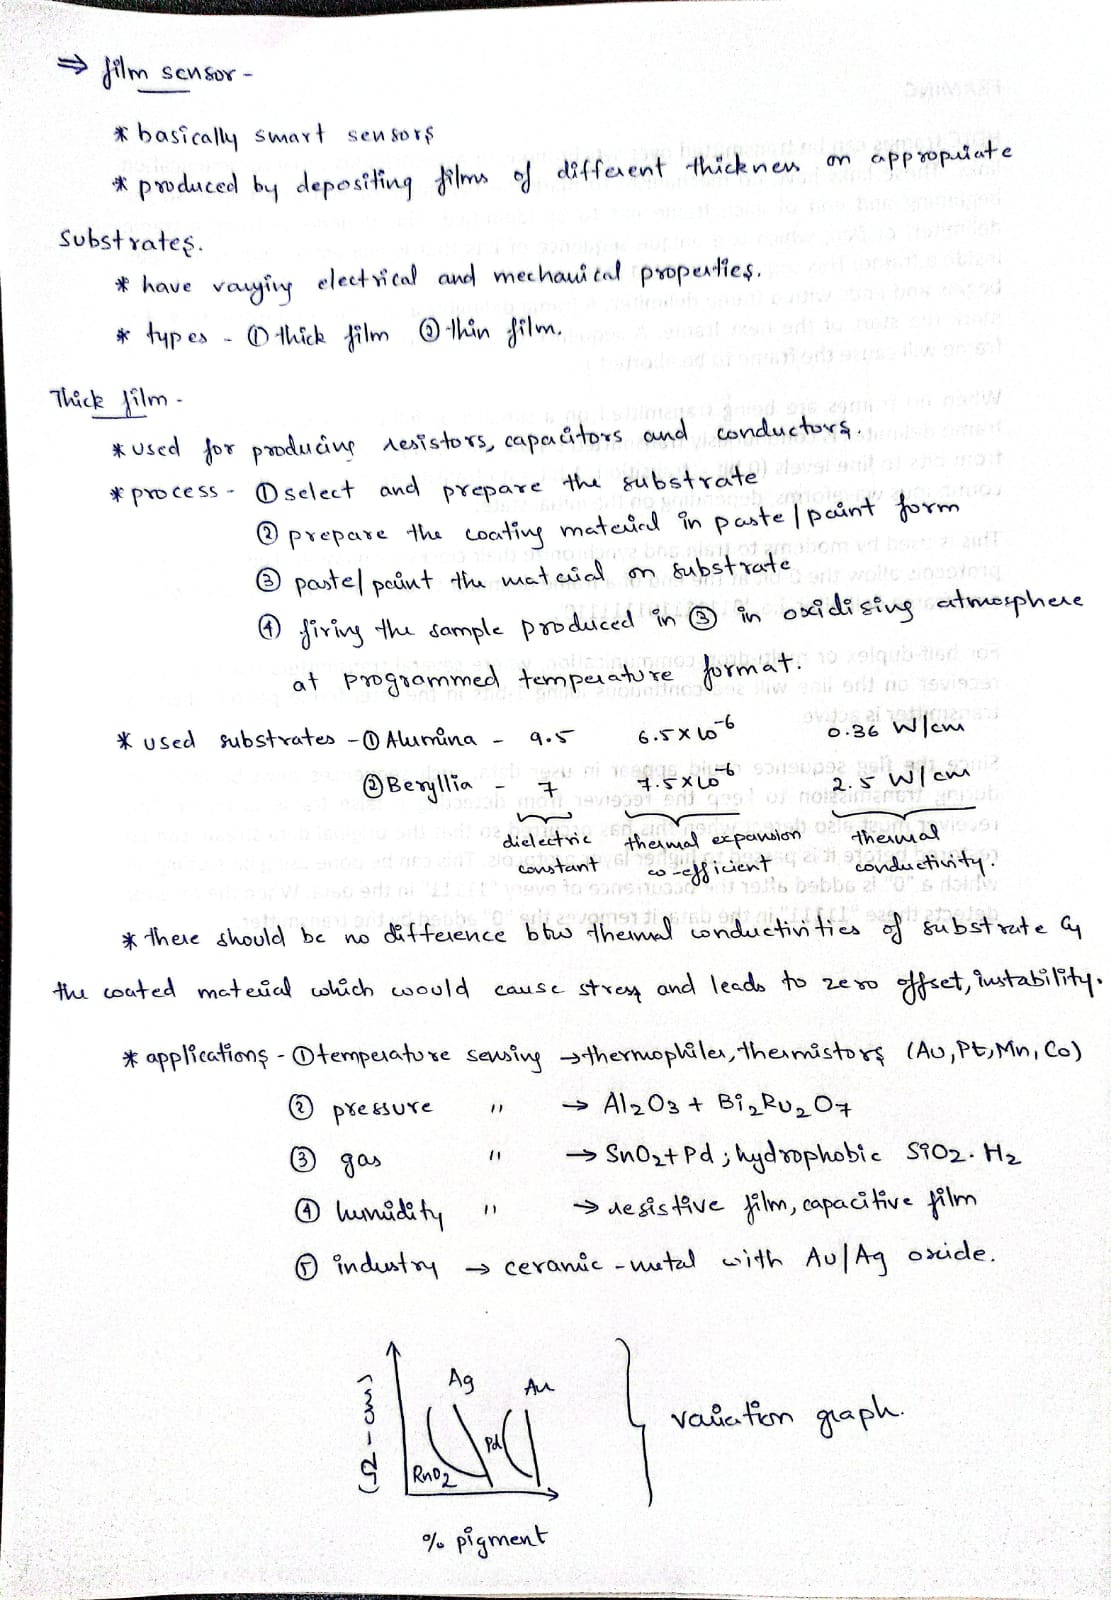 ⇒ film sensor -
* basically smart sensors
* produced by depositing films of different thickness on appropriate
substrates.
* have varying electrical and mechanical properties.
* types - ① thick film ② thin film.
Thick film -
* used for producing resistors, capacitors and conductors.
* process - ① select and prepare the substrate
② prepare the coating material in paste/paint form
③ paste/paint the material on substrate
④ firing the sample produced in ③ in oxidising atmosphere
at programmed temperature format.
* used substrates - ① Alumina - 9.5 6.5×10⁻⁶ 0.36 W/cm
② Beryllia - 7 7.5×10⁻⁶ 2.5 W/cm
dielectric thermal expansion thermal
constant co-efficient conductivity.
* there should be no difference btw thermal conductivities of substrate &
the coated material which would cause stress and leads to zero offset, instability.
* applications - ① temperature sensing → thermophiles, thermistors (Au, Pt, Mn, Co)
② pressure " → Al2O3 + Bi2Ru2O7
③ gas " → SnO2+Pd ; hydrophobic SiO2. H2
④ humidity " → resistive film, capacitive film
⑤ industry → ceramic-metal with Au/Ag oxide.
Ag Au
Pd
RnO2
(Ω-cm)
% pigment
variation graph.